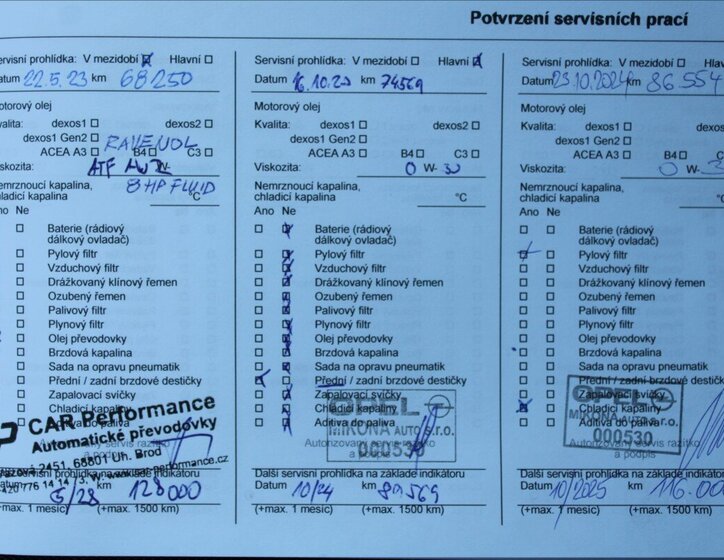 Potvrzení servisních prací
ervisní prohlídka: V mezidobí Hlavní
Datum 22.5.23 km 68250
Motorový olej
Kvalita: dexos1 dexos2
dexos1 Gen2 RAVENOL
ACEA A3 B4 C3
Viskozita: ATF W-
Nemrznoucí kapalina, 8HP FLUID
chladicí kapalina °C
Ano Ne
Baterie (rádiový
dálkový ovladač)
Pylový filtr
Vzduchový filtr
Drážkovaný klínový řemen
Ozubený řemen
Palivový filtr
Plynový filtr
Olej převodovky
Brzdová kapalina
Sada na opravu pneumatik
Přední / zadní brzdové destičky
Zapalovací svíčky
Chladicí kapaliny
CAR Performance
Automatické převodovky
2451, 68801 Uh. Brod
+420 776 14 14 3, W: www.car-performance.cz
servisní prohlídka na základě indikátoru
Datum 5/28 km 128000
(+max. 1 měsíc) (+max. 1500 km)
Servisní prohlídka: V mezidobí Hlavní
Datum 16.10.23 km 74569
Motorový olej
Kvalita: dexos1 dexos2
dexos1 Gen2
ACEA A3 B4 C3
Viskozita: 0 W- 30
Nemrznoucí kapalina,
chladicí kapalina °C
Ano Ne
Baterie (rádiový
dálkový ovladač)
Pylový filtr
Vzduchový filtr
Drážkovaný klínový řemen
Ozubený řemen
Palivový filtr
Plynový filtr
Olej převodovky
Brzdová kapalina
Sada na opravu pneumatik
Přední / zadní brzdové destičky
Zapalovací svíčky
Chladicí kapaliny
Aditiva do paliva
OPEL
MIKONA AUTO s.r.o.
000530
Autorizovaný servis razítko
a podpis
Další servisní prohlídka na základě indikátoru
Datum 10/24 km 89569
(+max. 1 měsíc) (+max. 1500 km)
Servisní prohlídka: V mezidobí
Datum 23.10.2024 km 86554
Motorový olej
Kvalita: dexos1 dexos2
dexos1 Gen2
ACEA A3 B4 C3
Viskozita: 0 W-
Nemrznoucí kapalina,
chladicí kapalina
Ano Ne
Baterie (rádiový
dálkový ovladač)
Pylový filtr
Vzduchový filtr
Drážkovaný klínový řemen
Ozubený řemen
Palivový filtr
Plynový filtr
Olej převodovky
Brzdová kapalina
Sada na opravu pneumatik
Přední / zadní brzdové destičky
Zapalovací svíčky
Chladicí kapaliny
Aditiva do paliva
OPEL
MIKONA AUTO s.r.o.
000530
Autorizovaný servis razítko
a podpis
Další servisní prohlídka na základě indikátoru
Datum 10/2025 km 116.00
(+max. 1 měsíc) (+max. 1500 km)